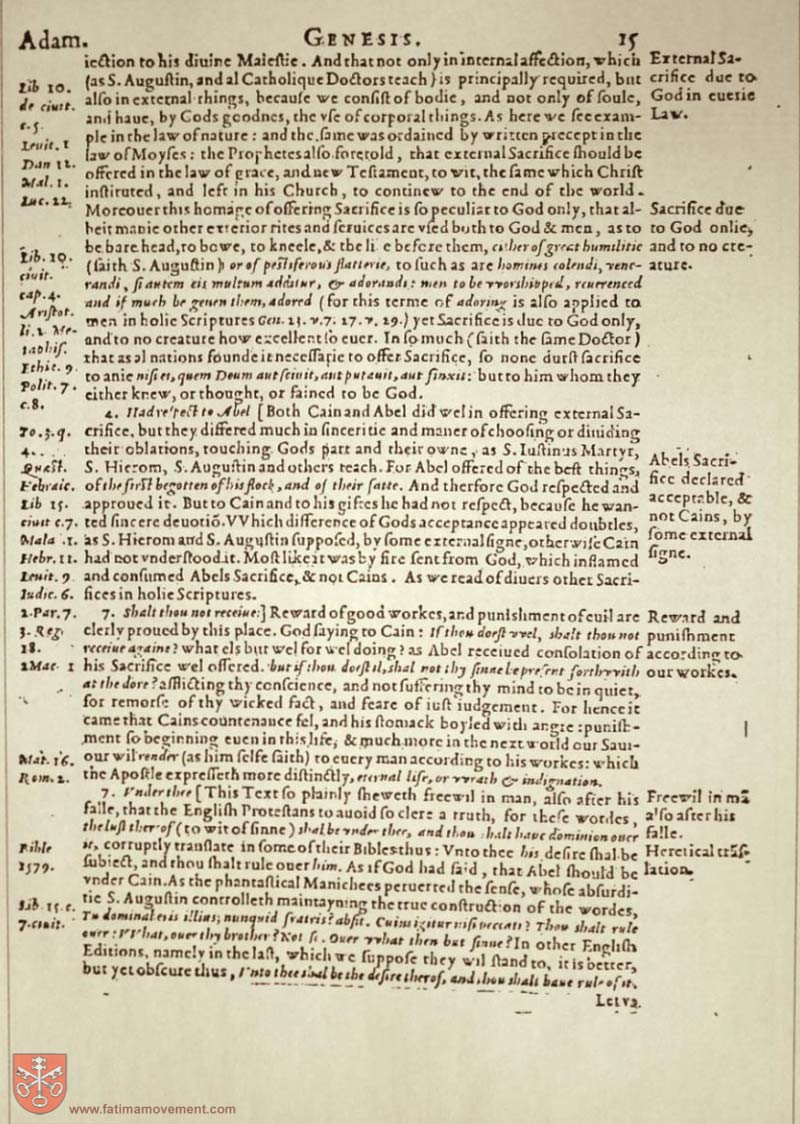 Adam. GENESIS. 15
iection to his diuine Maiestie. And that not only in internal affection, which
(as S. Augustin, and al Catholique Doctors teach) is principally required, but
also in external things, because we consist of bodie, and not only of soule,
and haue, by Gods goodnes, the vse of corporal things. As here we see exam-
ple in the law of nature: and the same was ordained by written precept in the
law of Moyses: the Prophetes also foretold, that external Sacrifice should be
offered in the law of grace, and new Testament, to wit, the same which Christ
instituted, and left in his Church, to continew to the end of the world.
Moreouer this homage of offering Sacrifice is so peculiar to God only, that al-
beit manie other exterior rites and seruices are vsed both to God & men, as to
be bare head, to bowe, to kneele, & the li e before them, either of great humilitie
(saith S. Augustin) or of pestiferous flatterie, to such as are homines colendi, vene-
randi, si autem eis multum additur, & adorandi: men to be vvorshipped, reuerenced
and if much be geuen them, adored (for this terme of adoring is also applied to
men in holie Scriptures Gen. 23. v. 7. 27. v. 29.) yet Sacrifice is due to God only,
and to no creature how excellent so euer. In so much (saith the same Doctor)
that as al nations founde it necessarie to offer Sacrifice, so none durst sacrifice
to anie nisi ei, quem Deum aut sciuit, aut putauit, aut finxit: but to him whom they
either knew, or thought, or fained to be God.
4. Had respect to Abel [Both Cain and Abel did wel in offering external Sa-
crifice, but they differed much in sinceritie and maner of choosing or diuiding
their oblations, touching Gods part and their owne, as S. Iustinus Martyr,
S. Hierom, S. Augustin and others teach. For Abel offered of the best things,
of the first begotten of his flock, and of their fatte. And therfore God respected and
approued it. But to Cain and to his giftes he had not respect, because he wan-
ted sincere deuotiō. VVhich difference of Gods acceptance appeared doubtles,
as S. Hierom and S. Augustin supposed, by some external signe, otherwise Cain
had not vnderstood it. Most like it was by fire sent from God, which inflamed
and consumed Abels Sacrifice, & not Cains. As we read of diuers other Sacri-
fices in holie Scriptures.
7. Shalt thou not receiue:] Reward of good workes, and punishment of euil are
clerly proued by this place. God saying to Cain: If thou doest vvel, shalt thou not
receiue againe? what els but wel for wel doing? as Abel receiued consolation of
his Sacrifice wel offered. but if thou doest il, shal not thy sinne be present forthvvith
at the dore? afflicting thy conscience, and not suffering thy mind to be in quiet,
for remorse of thy wicked fact, and feare of iust iudgement. For hence it
came that Cains countenance fel, and his stomack boyled with angre: punish-
ment so beginning euen in this life, & much more in the next world our Saui-
our wil render (as him selfe saith) to euery man according to his workes: which
the Apostle expresseth more distinctly, eternal life, or vvrath & indignation.
7. Vnder thee [This Text so plainly sheweth freewil in man, also after his
falle, that the English Protestans to auoid so clere a truth, for these wordes,
the lust therof (to wit of sinne) shal be vnder thee, and thou shalt haue dominion ouer
it, corruptly translate in some of their Bibles thus: Vnto thee his desire shal be
subiect, and thou shalt rule ouer him. As if God had said, that Abel should be
vnder Cain. As the phantastical Manichees peruerted the sense, whose absurdi-
tie S. Augustin controlleth maintayning the true construction of the wordes,
Tu dominaberis illius; nunquid fratris? absit. Cuius igitur nisi peccati? Thou shalt rule
ouer: VVhat, ouer thy brother? Not so. Ouer vvhat then but sinne? In other English
Editions, namely in the last, which we suppose they wil stand to, it is better,
but yet obscure thus, Vnto thee shal be the desire therof, and thou shalt haue rule of it.
Letva.
Lib 10.
de ciuit.
c. 5.
Leuit. 1
Dan 12.
Mal. 1.
Luc. 22.
Lib. 10.
ciuit.
cap. 4.
Aristot.
li. 1. Me-
taphis.
Ethic. 9.
Polit. 7.
c. 8.
To. 3. q.
4.
Quest.
Hebraic.
Lib 15.
ciuit c. 7.
Mala .1.
Hebr. 11.
Leuit. 9
Iudic. 6.
2. Par. 7.
3. Reg.
18.
2 Mac. 1
Mat. 16.
Rom. 2.
Bible
1579.
Lib. 15. c.
7. ciuit.
External Sa-
crifice due to
God in euerie
Law.
Sacrifice due
to God onlie,
and to no cre-
ature.
Abels Sacri-
fice declared
acceptable, &
not Cains, by
some external
signe.
Reward and
punishment
according to
our workes.
Freewil in mā
also after his
falle.
Heretical trās-
lation.
www.fatimamovement.com